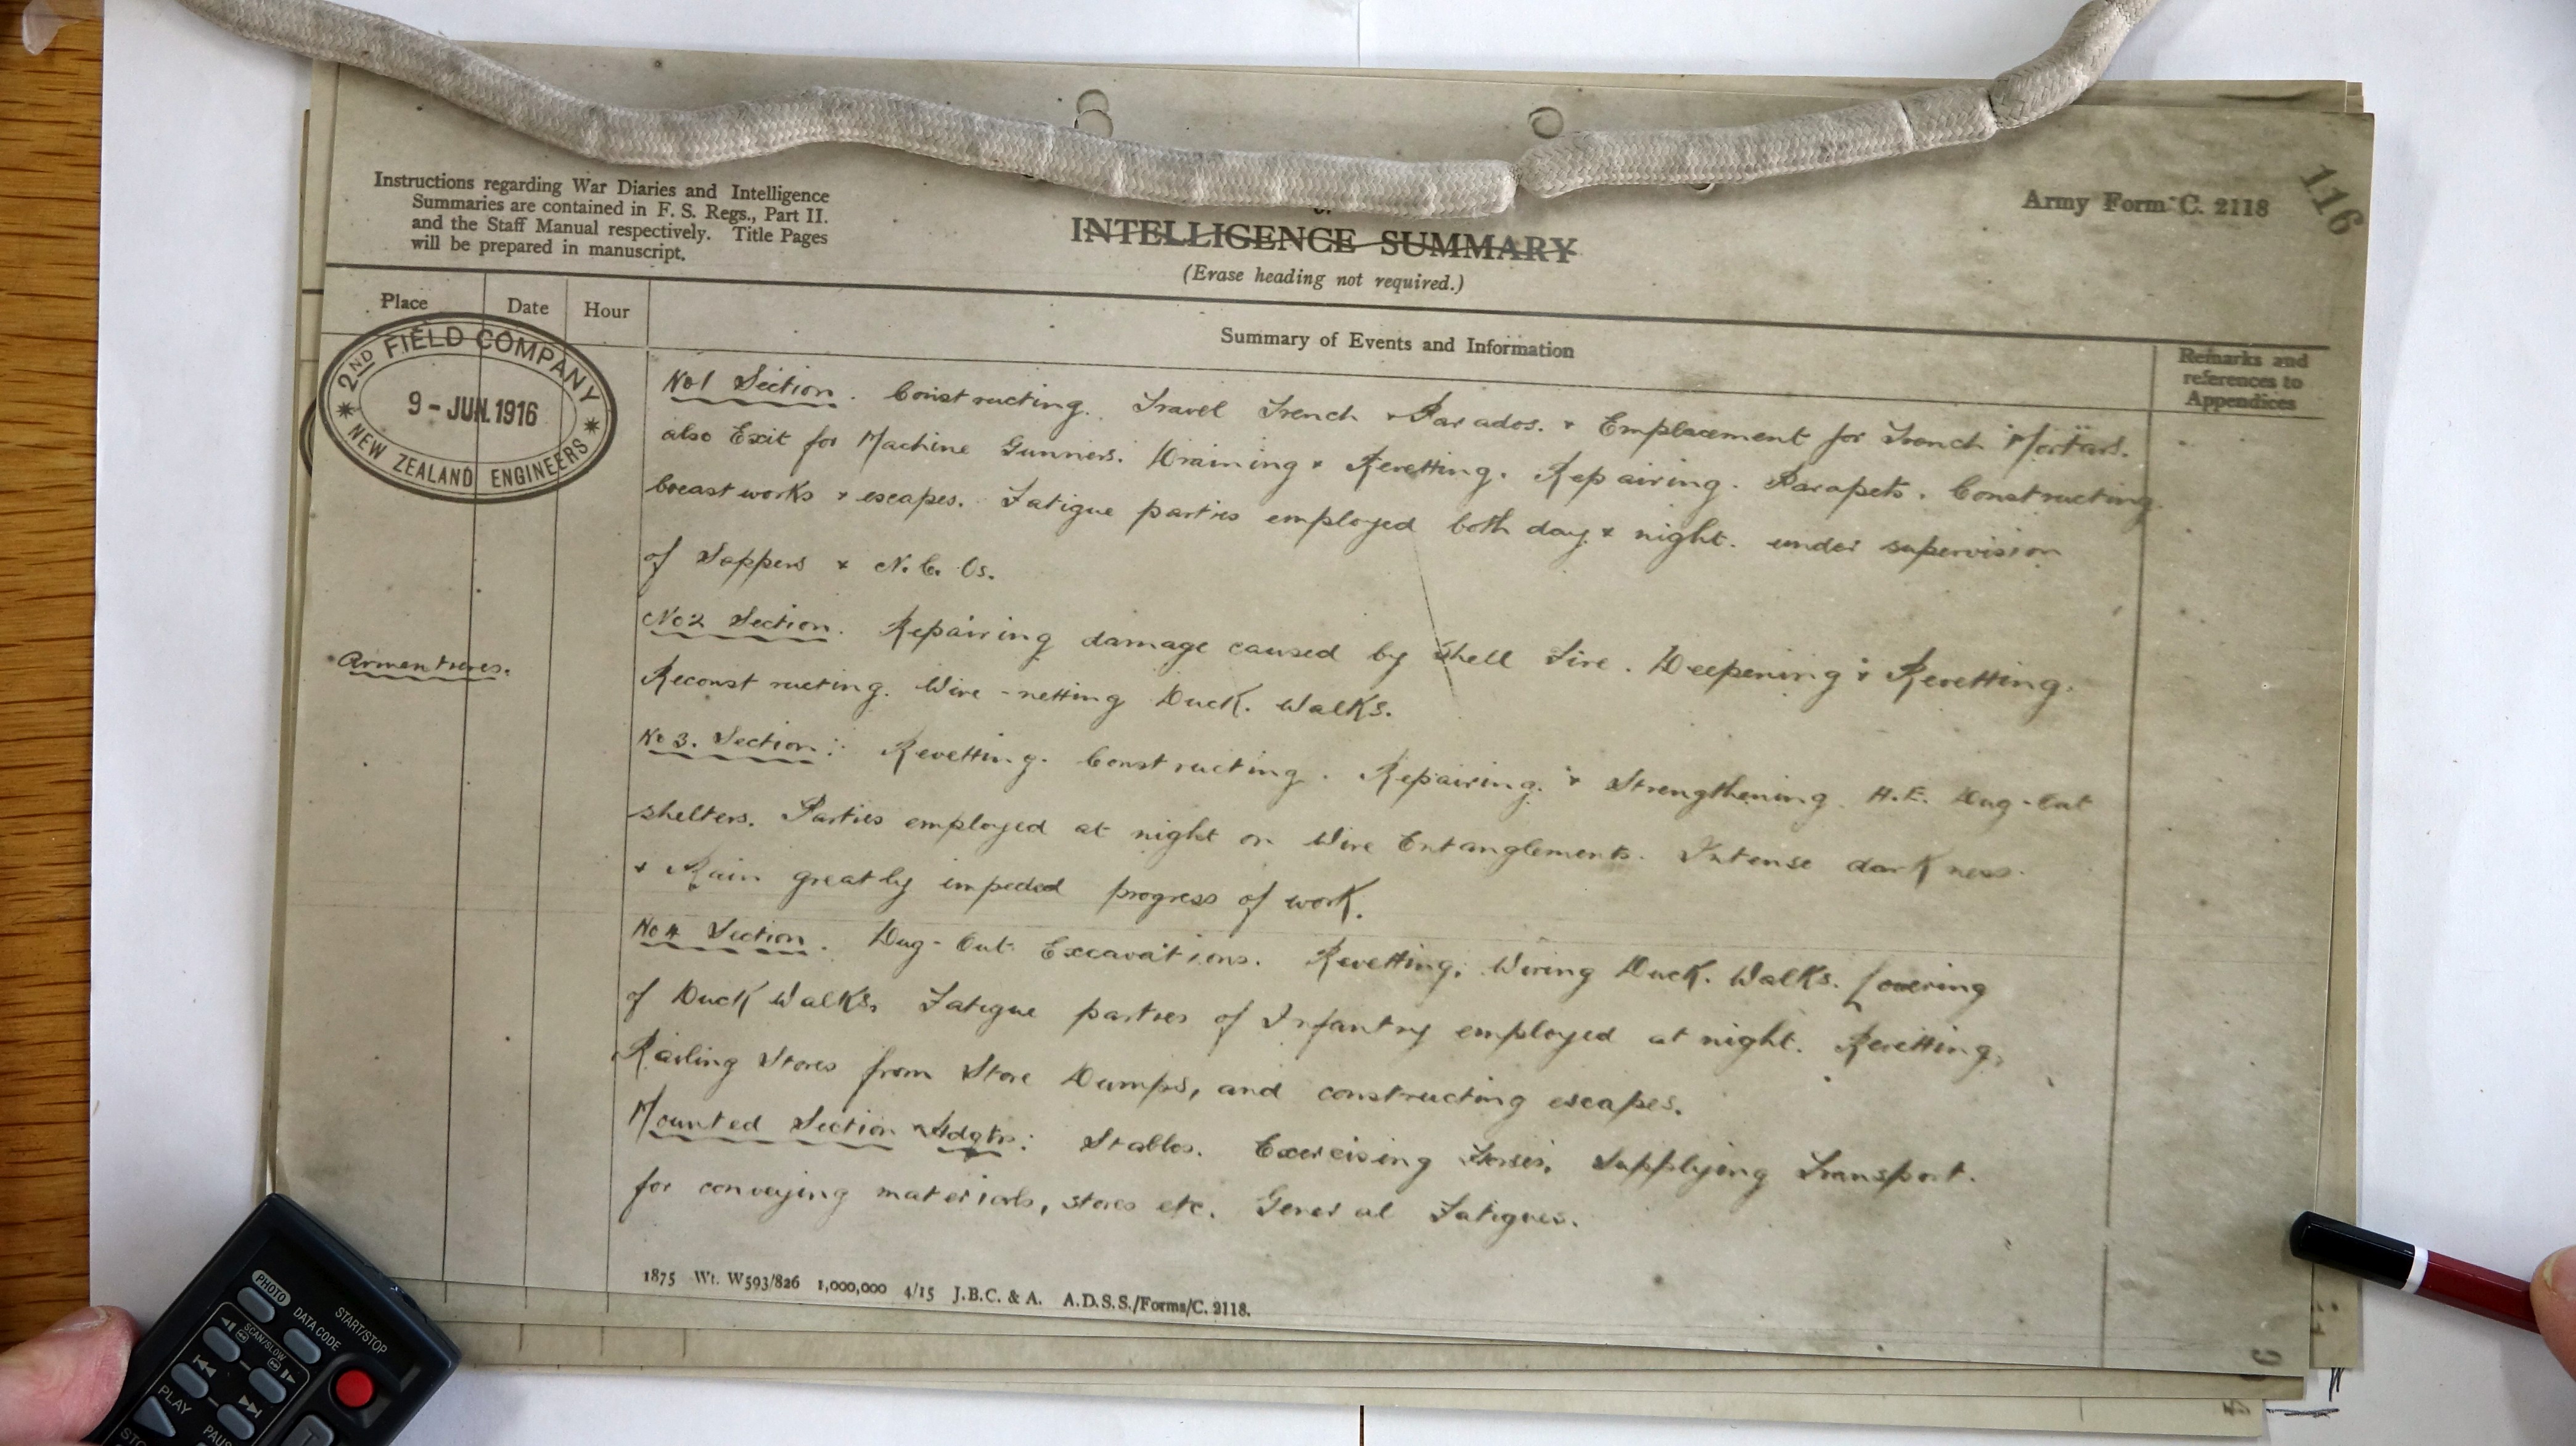 Instructions regarding War Diaries and Intelligence
Summaries are contained in F. S. Regs., Part II.
and the Staff Manual respectively. Title Pages
will be prepared in manuscript.
INTELLIGENCE SUMMARY
(Erase heading not required.)
Army Form C. 2118
116
Place
Date
Hour
Summary of Events and Information
Remarks and
references to
Appendices
2ND FIELD COMPANY
9 - JUN. 1916
NEW ZEALAND ENGINEERS
Armentieres.
No1 Section. Constructing. Travel Trench & Parados. & Emplacement for Trench Mortars.
also Exit for Machine Gunners. Draining & Revetting. Repairing. Parapets. Constructing
breastworks & escapes. Fatigue parties employed both day & night. under supervision
of Sappers & N.C.Os.
No2 Section. Repairing damage caused by Shell Fire. Deepening & Revetting.
Reconstructing. Wire-netting Duck. Walks.
No 3. Section: Revetting. Constructing. Repairing. & Strengthening. H.E. Dug-Out
shelters. Parties employed at night on Wire Entanglements. Intense darkness
& Rain greatly impeded progress of work.
No 4 Section. Dug-Out Excavations. Revetting, Wiring Duck. Walks. Covering
of Duck Walks, Fatigue parties of Infantry employed at night. Revetting,
Railing Stores from Store Dumps, and constructing escapes.
Mounted Section & Hdqtrs: Stables. Exercising Horses, Supplying Transport.
for conveying materials, stores etc. General Fatigues.
1875 Wt. W593/826 1,000,000 4/15 J.B.C. & A. A.D.S.S./Forms/C. 2118.
PHOTO
DATA CODE
START/STOP
SCAN/SLOW
PLAY